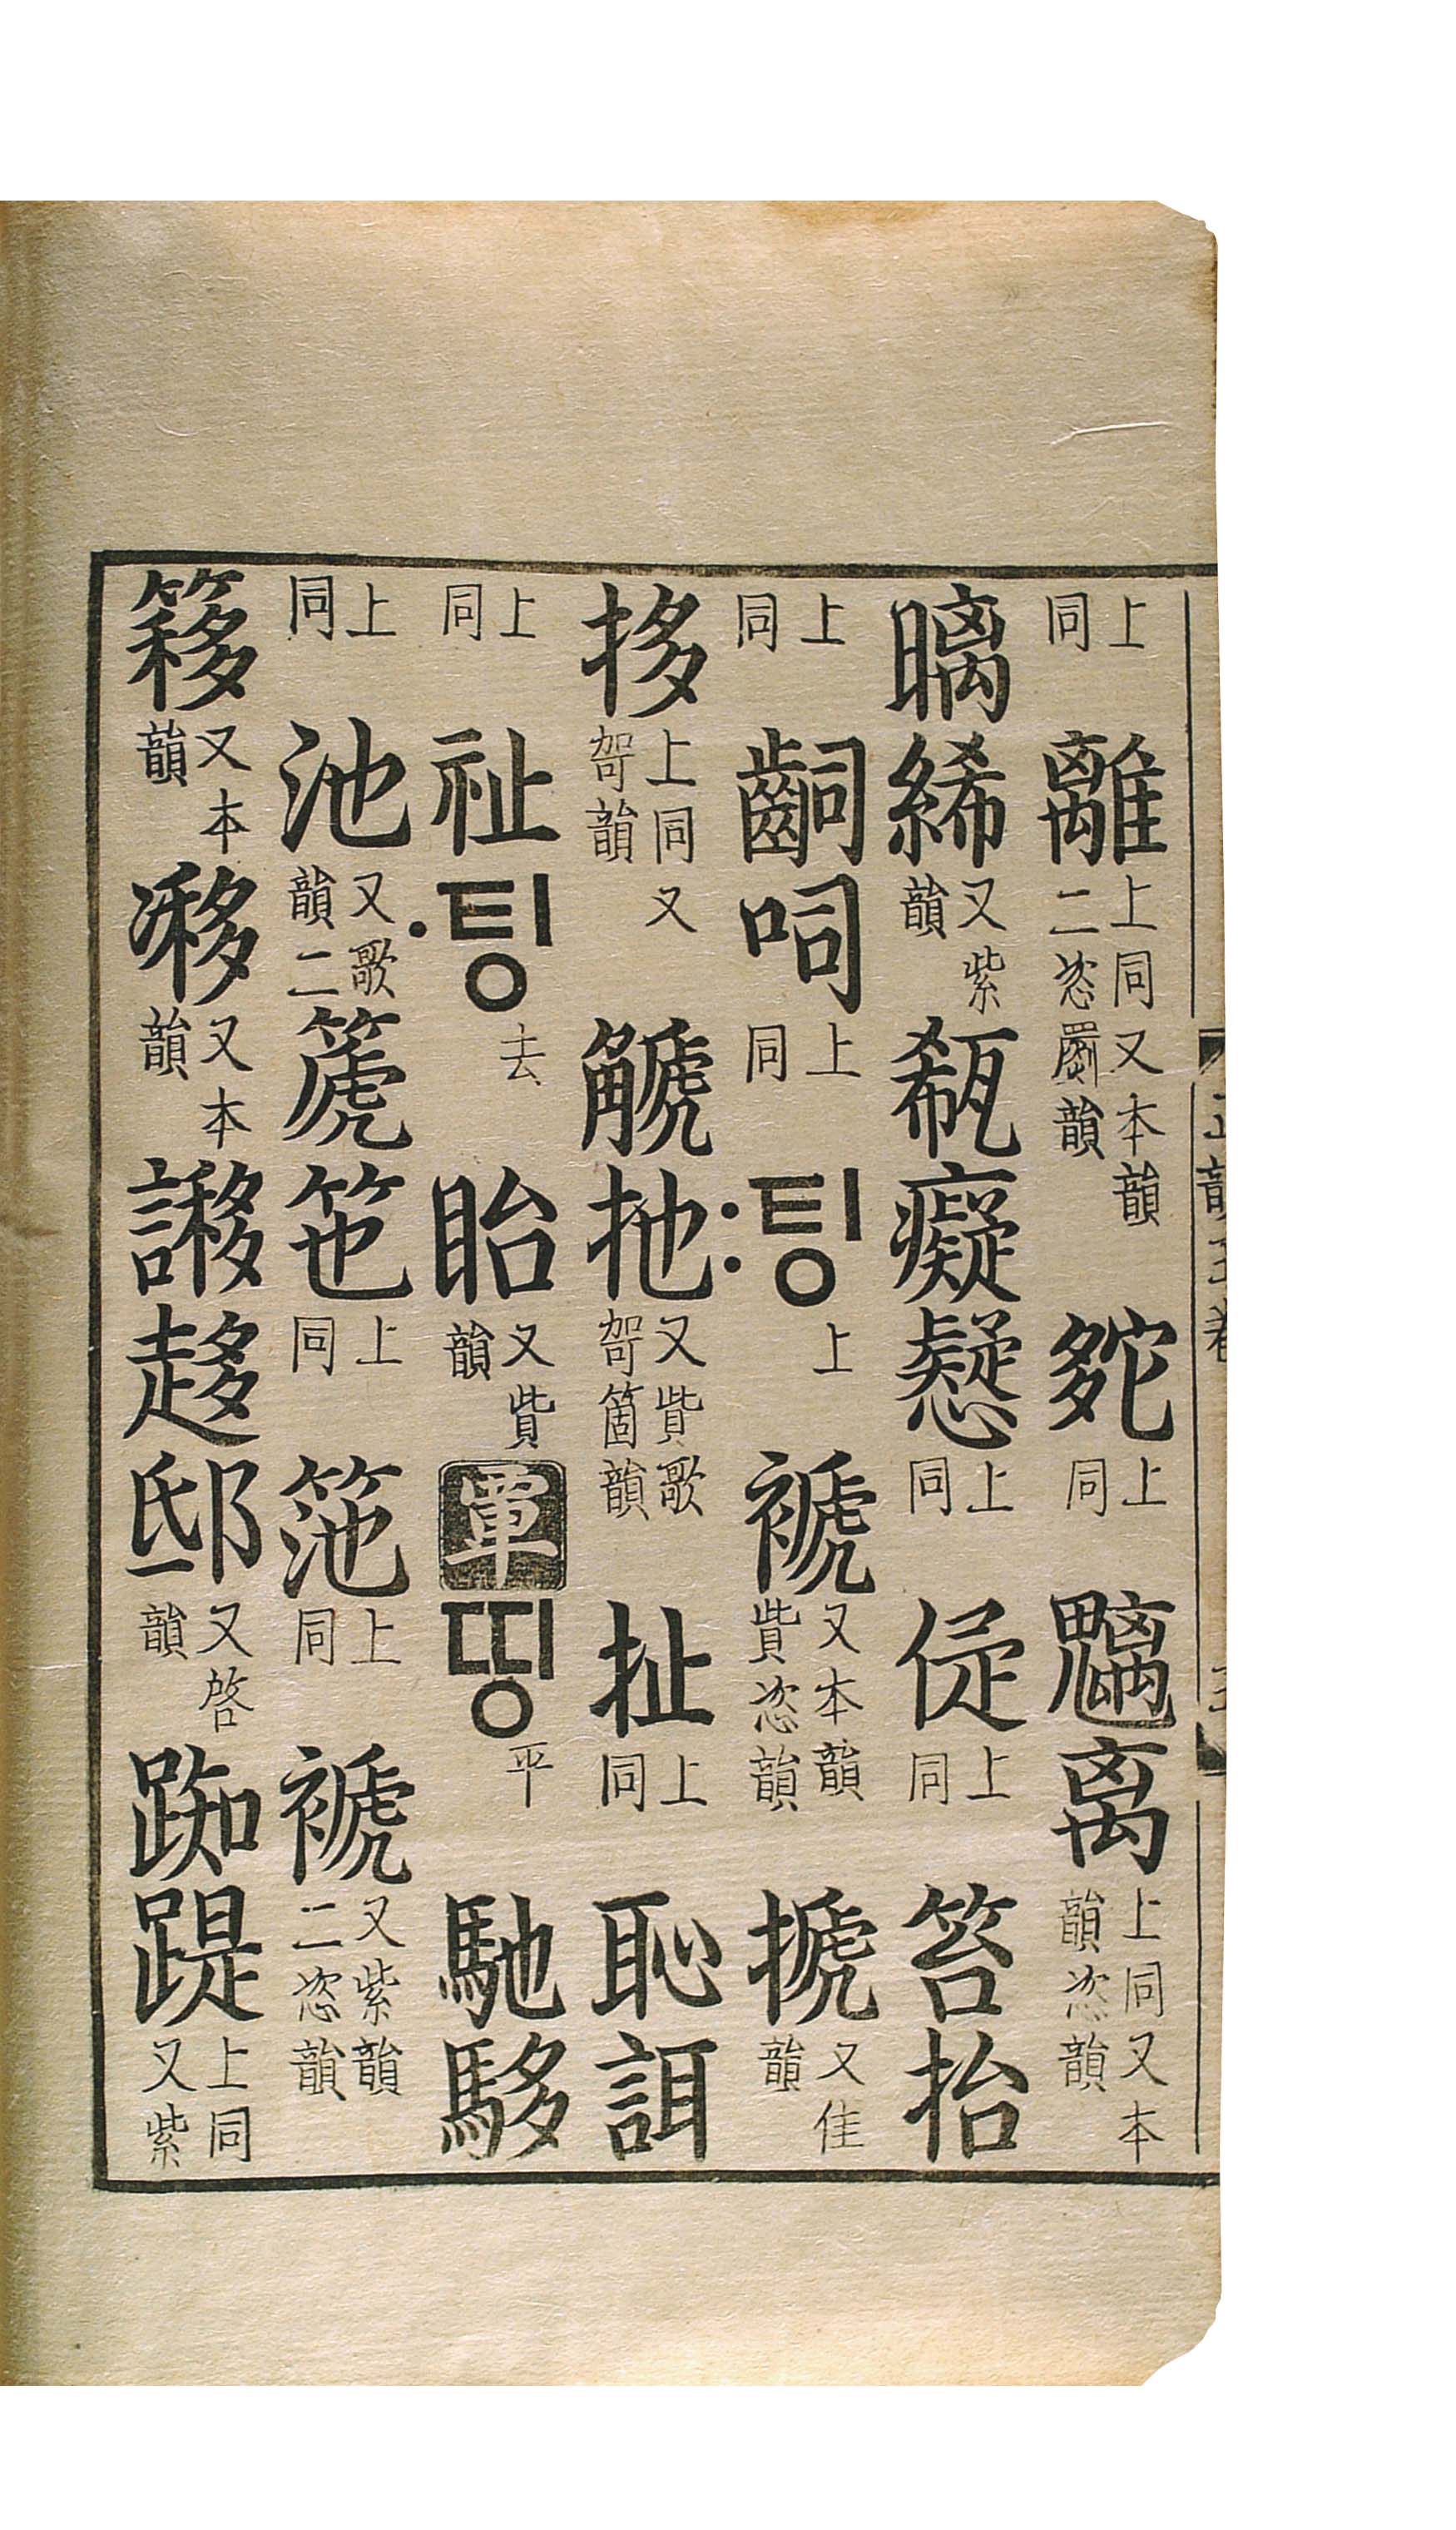 上同離上同又本韻二恣罽韻㐌上同魑离上同又本韻恣韻
瞝絺又紫韻瓻癡懝上同㑜上同笞抬
上同齝呞上同〯팅上褫又本韻貲恣韻搋又佳韻
拸上同又哿韻䚦扡又貲歌哿箇韻扯上同恥誀
上同祉〮팅去眙又貲韻覃띵平馳䮈
上同池又歌韻二篪竾上同箎上同褫又紫韻二恣韻
簃又本韻㢋又本韻謻趍邸又啓韻踟踶上同又紫